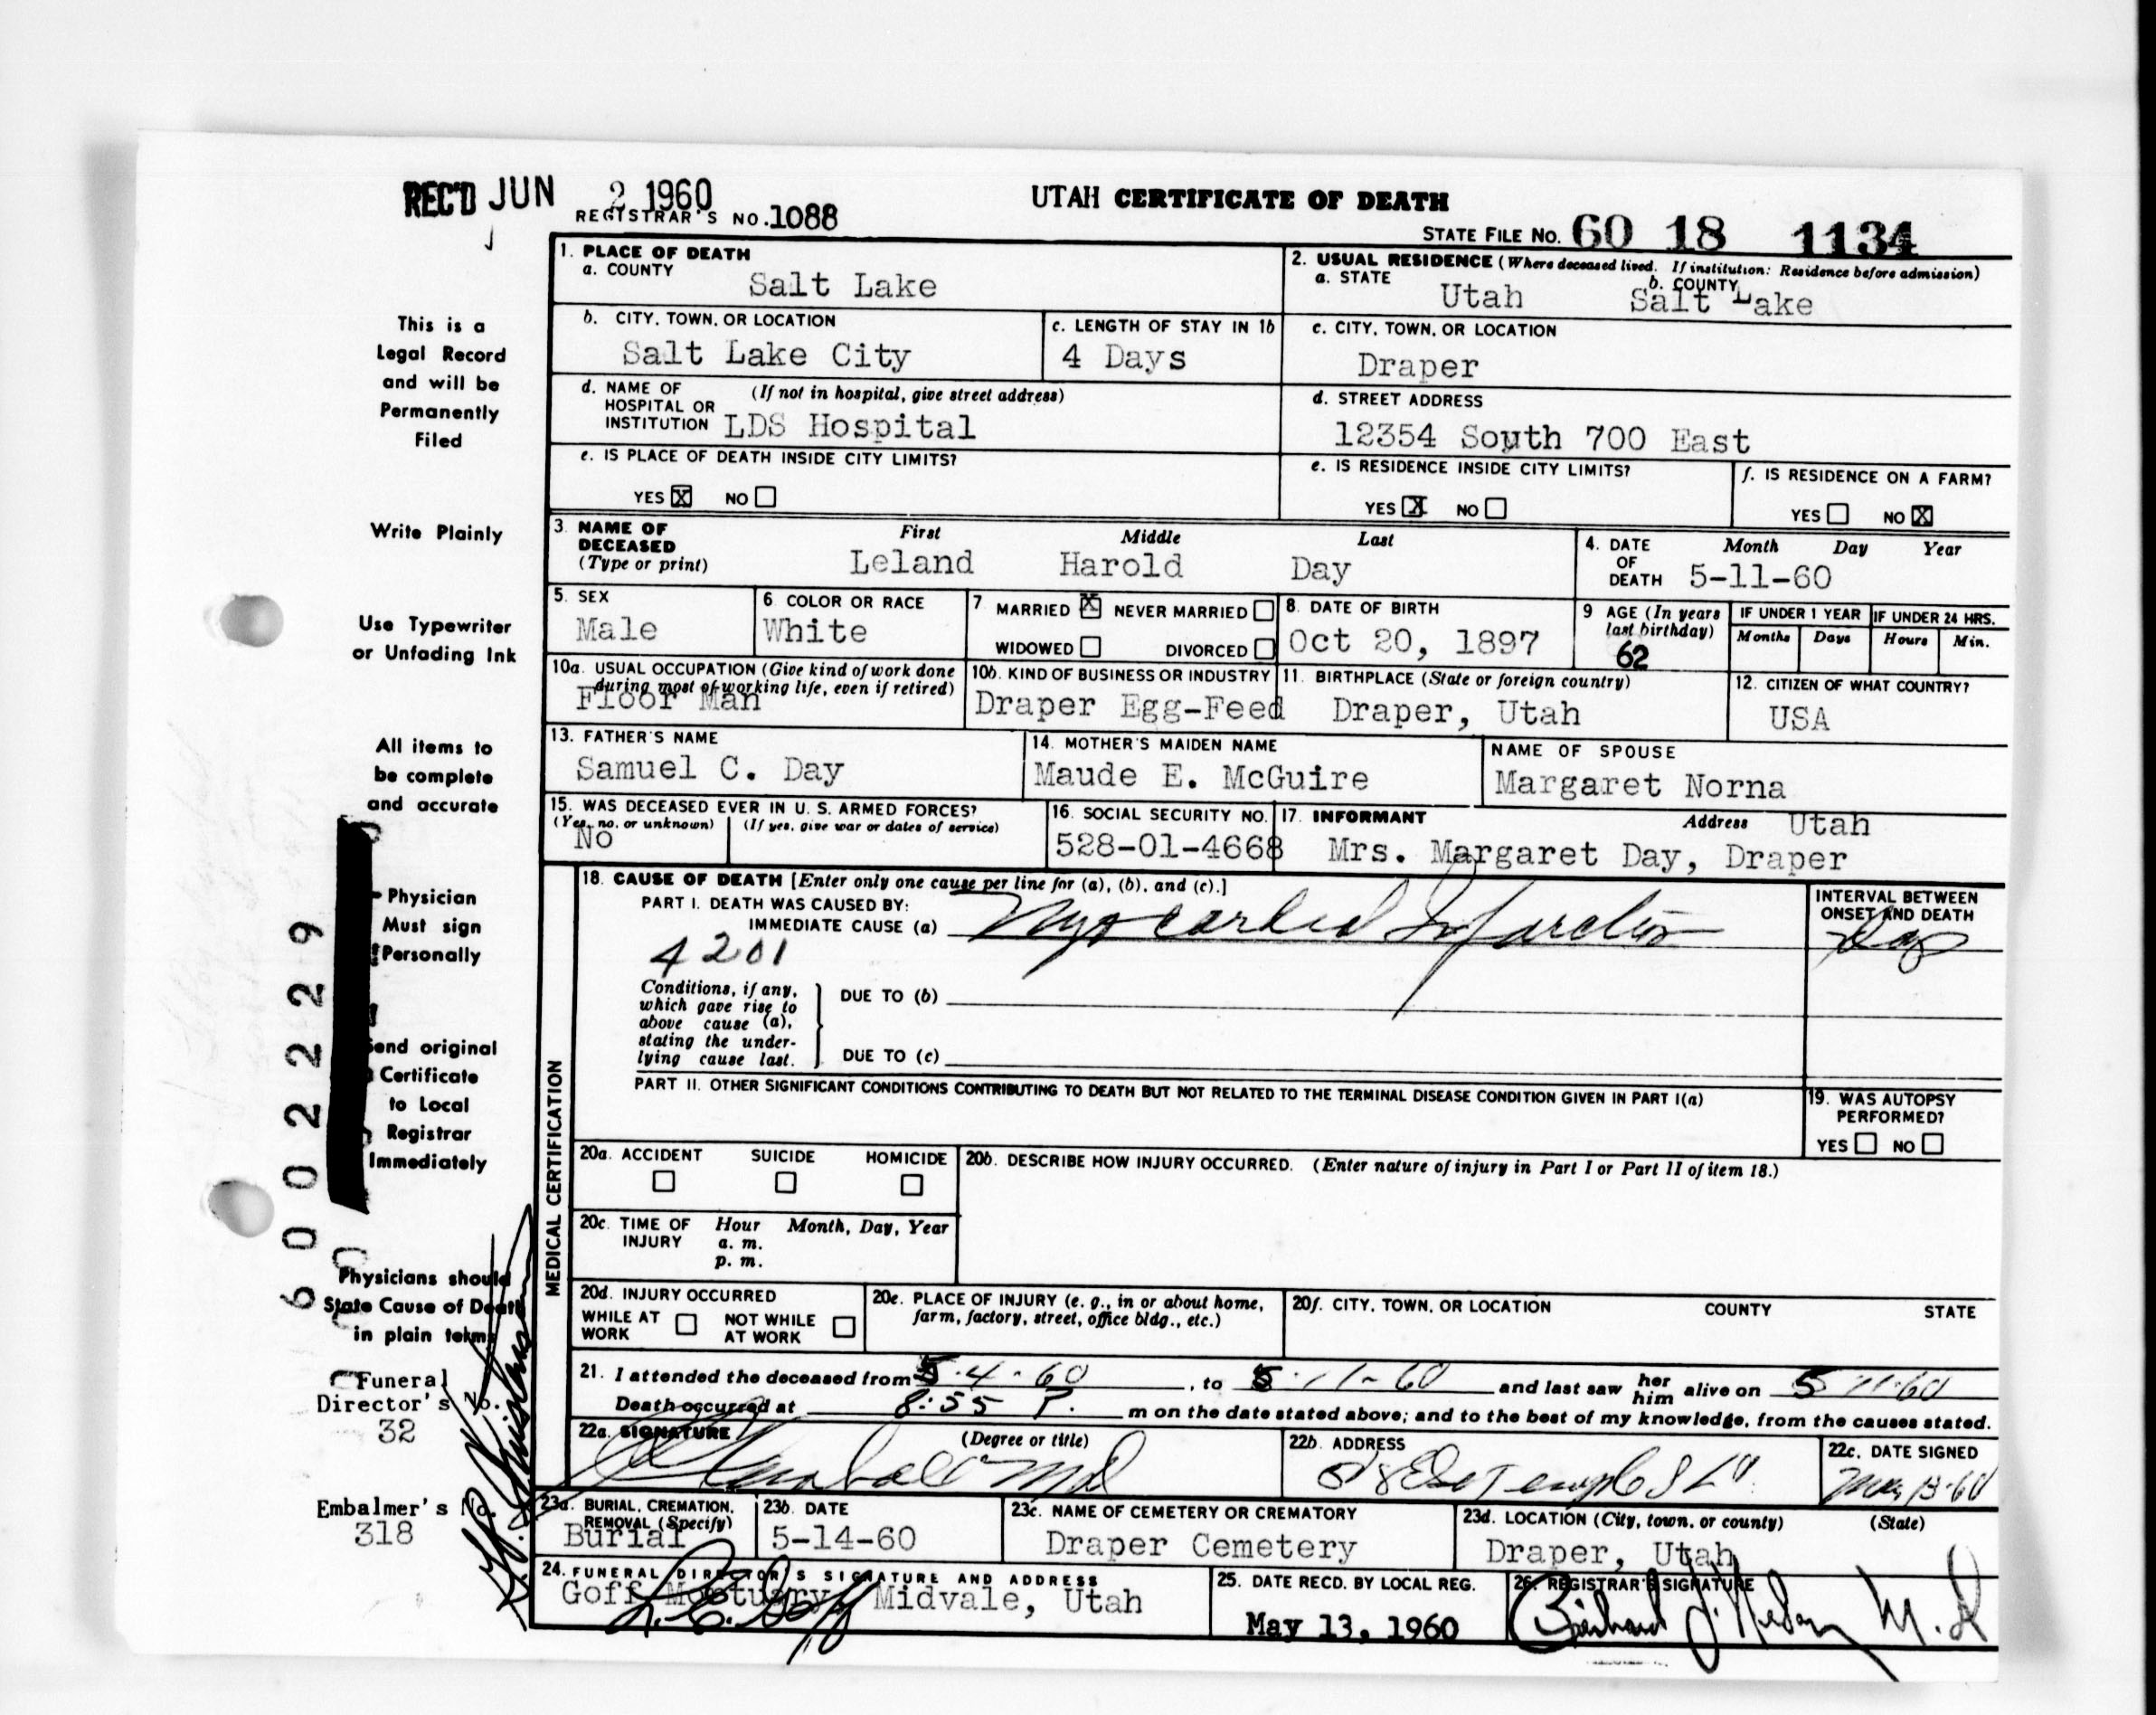 REC'D JUN 2 1960
REGISTRAR'S NO. 1088
UTAH CERTIFICATE OF DEATH
STATE FILE No. 60 18 1134
This is a
Legal Record
and will be
Permanently
Filed
Write Plainly
Use Typewriter
or Unfading Ink
All items to
be complete
and accurate
Physician
Must sign
Personally
Send original
Certificate
to Local
Registrar
Immediately
Physicians should
State Cause of Death
in plain terms
Funeral
Director's No.
32
Embalmer's No.
318
6002229
1. PLACE OF DEATH
a. COUNTY Salt Lake
2. USUAL RESIDENCE (Where deceased lived. If institution: Residence before admission)
a. STATE Utah b. COUNTY Salt Lake
b. CITY, TOWN, OR LOCATION Salt Lake City
c. LENGTH OF STAY IN 1b 4 Days
c. CITY, TOWN, OR LOCATION Draper
d. NAME OF HOSPITAL OR INSTITUTION (If not in hospital, give street address) LDS Hospital
d. STREET ADDRESS 12354 South 700 East
e. IS PLACE OF DEATH INSIDE CITY LIMITS? YES X NO
e. IS RESIDENCE INSIDE CITY LIMITS? YES X NO
f. IS RESIDENCE ON A FARM? YES NO X
3. NAME OF DECEASED (Type or print) First Middle Last
Leland Harold Day
4. DATE OF DEATH Month Day Year 5-11-60
5. SEX Male
6 COLOR OR RACE White
7 MARRIED X NEVER MARRIED WIDOWED DIVORCED
8. DATE OF BIRTH Oct 20, 1897
9 AGE (In years last birthday) 62
IF UNDER 1 YEAR Months Days
IF UNDER 24 HRS. Hours Min.
10a. USUAL OCCUPATION (Give kind of work done during most of working life, even if retired) Floor Man
10b. KIND OF BUSINESS OR INDUSTRY Draper Egg-Feed
11. BIRTHPLACE (State or foreign country) Draper, Utah
12. CITIZEN OF WHAT COUNTRY? USA
13. FATHER'S NAME Samuel C. Day
14. MOTHER'S MAIDEN NAME Maude E. McGuire
NAME OF SPOUSE Margaret Norna
15. WAS DECEASED EVER IN U. S. ARMED FORCES?
(Yes, no, or unknown) (If yes, give war or dates of service)
No
16. SOCIAL SECURITY NO. 528-01-4668
17. INFORMANT Address Utah
Mrs. Margaret Day, Draper
MEDICAL CERTIFICATION
18. CAUSE OF DEATH [Enter only one cause per line for (a), (b), and (c).]
PART I. DEATH WAS CAUSED BY:
IMMEDIATE CAUSE (a) Myocardial Infarction
4201
INTERVAL BETWEEN ONSET AND DEATH
Conditions, if any, which gave rise to above cause (a), stating the underlying cause last.
DUE TO (b)
DUE TO (c)
PART II. OTHER SIGNIFICANT CONDITIONS CONTRIBUTING TO DEATH BUT NOT RELATED TO THE TERMINAL DISEASE CONDITION GIVEN IN PART I(a)
19. WAS AUTOPSY PERFORMED? YES NO
20a. ACCIDENT SUICIDE HOMICIDE
20b. DESCRIBE HOW INJURY OCCURRED. (Enter nature of injury in Part I or Part II of item 18.)
20c. TIME OF INJURY Hour a. m. p. m. Month, Day, Year
20d. INJURY OCCURRED WHILE AT WORK NOT WHILE AT WORK
20e. PLACE OF INJURY (e. g., in or about home, farm, factory, street, office bldg., etc.)
20f. CITY, TOWN, OR LOCATION COUNTY STATE
21. I attended the deceased from 5-4-60, to 5-11-60 and last saw her him alive on 5-11-60
Death occurred at 8:55 P. m on the date stated above; and to the best of my knowledge, from the causes stated.
22a. SIGNATURE (Degree or title) MD
22b. ADDRESS
22c. DATE SIGNED May 13-60
23a. BURIAL, CREMATION, REMOVAL (Specify) Burial
23b. DATE 5-14-60
23c. NAME OF CEMETERY OR CREMATORY Draper Cemetery
23d. LOCATION (City, town, or county) (State) Draper, Utah
24. FUNERAL DIRECTOR'S SIGNATURE AND ADDRESS
Goff Mortuary Midvale, Utah
L. E. Goff
25. DATE RECD. BY LOCAL REG. May 13, 1960
26. REGISTRAR'S SIGNATURE
M. D